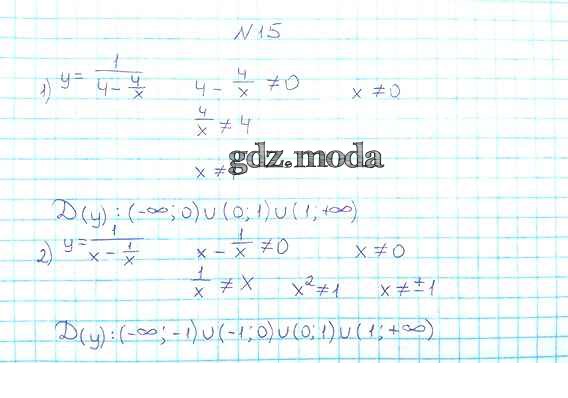 N15
1) y = 1/(4 - 4/x) 4 - 4/x ≠ 0 x ≠ 0
4/x ≠ 4
gdz.moda
x ≠
D(y): (-∞; 0)∪(0; 1)∪(1; +∞)
2) y = 1/(x - 1/x) x - 1/x ≠ 0 x ≠ 0
1/x ≠ x x² ≠ 1 x ≠ ±1
D(y): (-∞; -1)∪(-1; 0)∪(0; 1)∪(1; +∞)